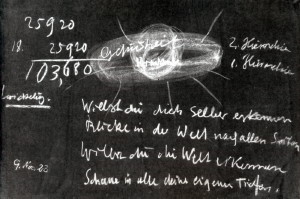 25920
25920
103,680
2. Hierarchie
1. Hierarchie
Willst du dich selber erkennen
Blicke in der Welt nach allen Seiten
Willst du die Welt erkennen
Schaue in alle deine eigenen Tiefen.
9. Nov. 23